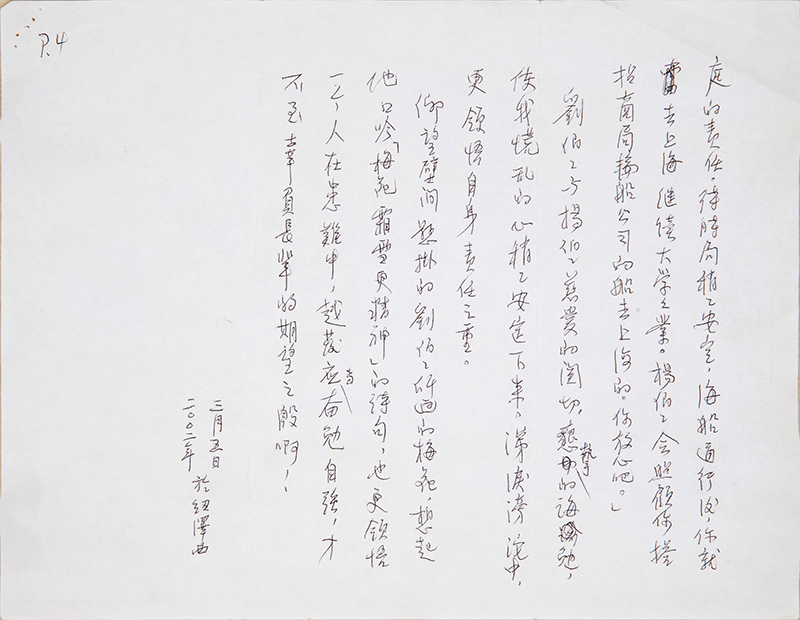 P.4
庭的責任，待時局稍稍安定，海船通行後，你就
去上海繼續大学之業。楊伯伯会照顧你搭
招商局輪船公司的船去上海的。你放心吧。」
劉伯伯与楊伯伯慈愛的関切，懇摯的誨勉，
使我慌乱的心稍稍安定下来，涕淚滂沱中，
更領悟自身責任之重。
仰望壁間懸掛的劉伯伯所画的梅花，想起
他口吟「梅花霜雪更精神」的詩句，也更領悟
一个人在患難中，越發应当奋勉自強，才
不至辜負長輩的期望之殷啊！
二〇〇二年
三月五日 於紐澤西